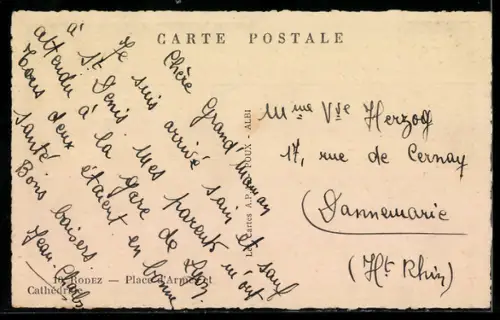 CARTE POSTALE
Chère Grand'maman
Je suis arrivé sain et sauf
à St. Denis mes parents m'ont
attendu à la gare de
Tous deux étaient en bonne
santé.
Bons baisers.
Jean-Charles
Mme Vve Herzog
17, rue de Cernay
Dannemarie
(Ht Rhin)
Les Cartes A.P. POUX - ALBI
RODEZ — Place d'Armes et
Cathédrale